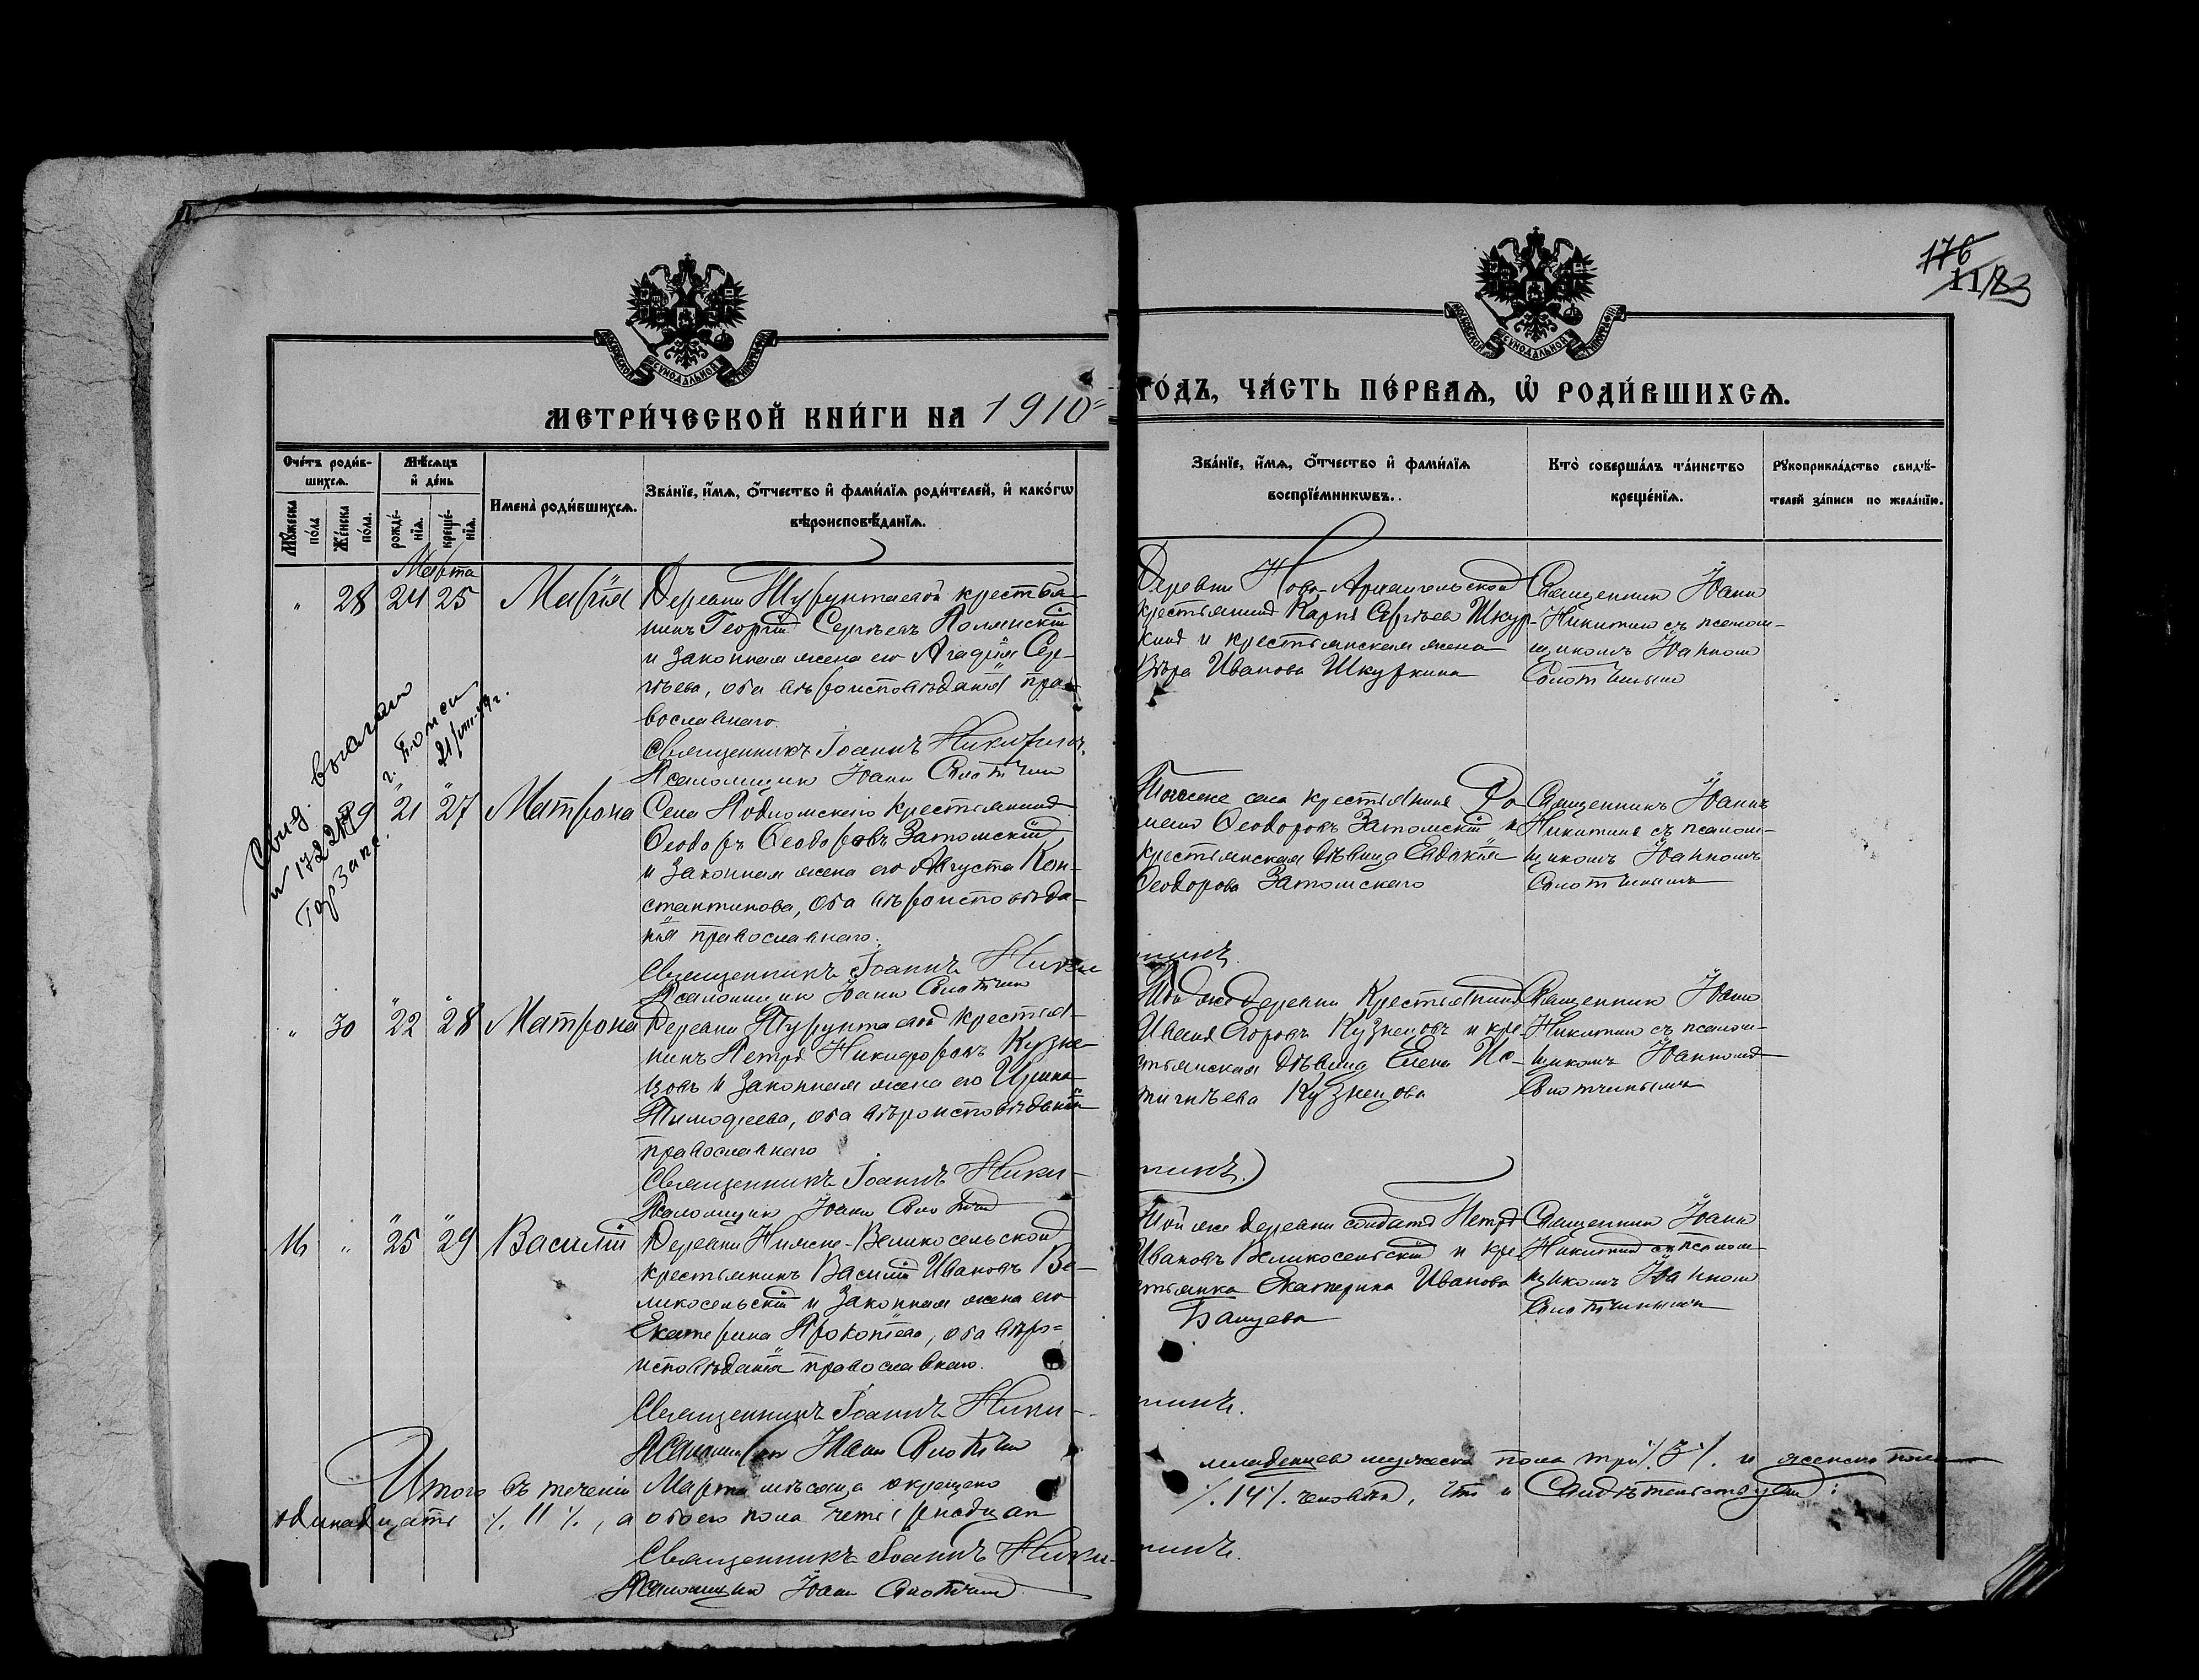 176
11/83
МОСКОВСКОЙ СѴНОДАЛЬНОЙ ТИПОГРАФІИ
МОСКОВСКОЙ СѴНОДАЛЬНОЙ ТИПОГРАФІИ
МЕТРИ́ЧЕСКОЙ КНИ́ГИ НА 1910
ГО́ДЪ, ЧА́СТЬ ПЕ́РВАѦ, Ѡ҆ РОДИ́ВШИХСѦ.
Сче́тъ роди́в-
шихсѧ.
Мꙋ́жеска по́ла
Же́нска по́ла.
Мѣ́сѧцъ
и҆ де́нь
рожде́-нїѧ.
креще́-нїѧ.
Имена̀ роди́вшихсѧ.
Зва́нїе, и҆́мѧ, ѻ҆́тчество и҆ фами́лїѧ роди́телей, и҆ како́гѡ
вѣроисповѣ́данїѧ.
Зва́нїе, и҆́мѧ, ѻ҆́тчество и҆ фами́лїѧ
воспрїе́мникѡвъ.
Кто̀ соверша́лъ та́инство
креще́нїѧ.
Рꙋкоприкла́дство свидѣ́-
телей за́писи по жела́нїю.
Марта
" 28 24 25 Марія
Деревни Турунтаевой крестья-
нинъ Георгій Сергѣевъ
и законная жена его Агафія Сер-
гѣева, оба вѣроисповѣданія пра-
вославнаго.
Священникъ Іоаннъ Никитинъ.
Псаломщик Іоанн
Деревни Ново-Архангельской
крестьянинъ Карпъ Сергѣевъ Шкур-
кинъ и крестьянская жена
Вѣра Иванова Шкуркина
Священник Іоанн
Никитин съ псалом-
щикомъ Іоанном
Свид. выслано
г. Томск
N 17221
Гор Загс.
29 21 27 Матрона
Села крестьянинъ
Ѳеодоръ Ѳеодоровъ Затомскій
и законная жена его Августа Кон-
стантинова, оба вѣроисповѣда-
нія православнаго.
Священникъ Іоаннъ Ники
Псаломщик Іоанн
Тогоже села крестьянинъ Ро-
манъ Ѳеодоровъ Затомскій и
крестьянская дѣвица Евдокія
Ѳеодорова Затомскаго
Священникъ Іоаннъ
Никитинъ съ псалом-
щикомъ Іоанномъ
тинъ.
" 30 22 28 Матрона
Деревни Турунтаевой крестья-
нинъ Петръ Никифоровъ Кузне-
цовъ и законная жена его Ирина
Тимофеева, оба вѣроисповѣданія
православнаго
Священникъ Іоаннъ Ники-
Псаломщик Іоанн
Той же деревни крестьянинъ
Иванъ Егоровъ Кузнецовъ и кре-
стьянская дѣвица Елена
Кузнецова
Священник Іоанн
Никитин съ псалом-
щикомъ Іоанномъ
тинъ.
16 " 25 29 Василій
Деревни Нижне-Великосельской
крестьянинъ Василій Ивановъ Ве-
ликосельскій и законная жена его
Екатерина Прокопіева, оба вѣро=
исповѣданія православнаго.
Священникъ Іоаннъ Ники-
Псаломщик Іоанн
Той же деревни солдатъ Петръ
Ивановъ Великосельскій и кре-
стьянка Екатерина Иванова
Священник Іоанн
Никитин съ псалом-
щикомъ Іоанном
тинъ.
Итого въ теченіи Марта мѣсяца окрещено
младенцевъ мужеска пола три ٪ 3 ٪. и женска пола
одинадцать ٪ 11 ٪, а обоего пола четырнадцат
٪ 14 ٪ человѣкъ, что и свидѣтельствуемъ:
Священникъ Іоаннъ Ники-
тинъ.
Псаломщик Іоанн